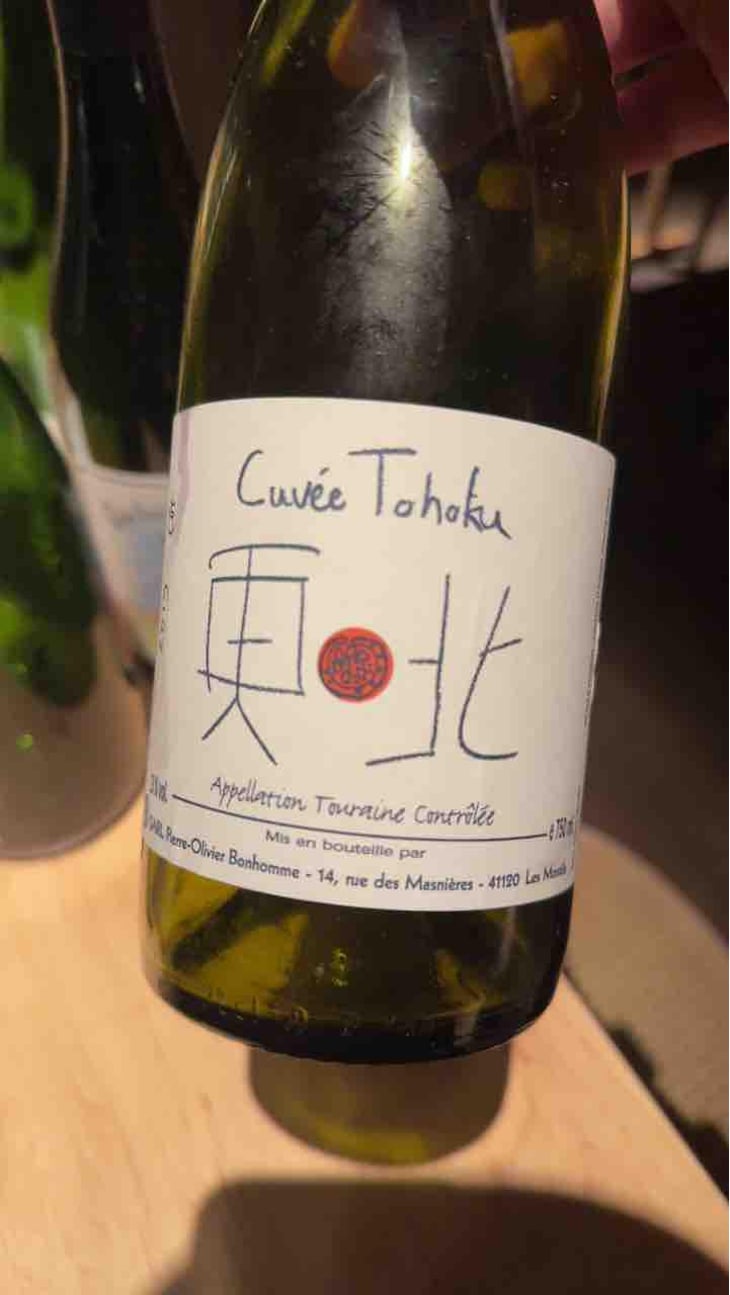 Cuvée Tohoku
東北
Appellation Touraine Contrôlée
vol.
e 750 m
Mis en bouteille par
SARL Pierre-Olivier Bonhomme - 14, rue des Masnières - 41120 Les Montils